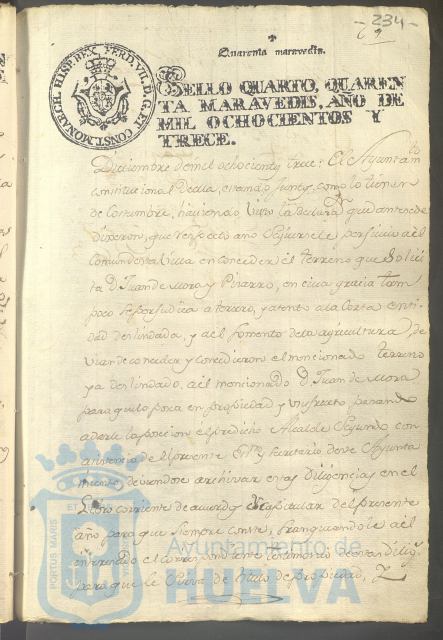 234
Quarenta maravedis.
HISP. REX. FERD. VII. D. G. ET CONST. MONARCH.
SELLO QUARTO, QUAREN
TA MARAVEDIS, AÑO DE
MIL OCHOCIENTOS Y
TRECE.
Diciembre de mil ochocientos trece: El Ayuntam.to
constitucional de ella, estando juntos, como lo tienen
de costumbre, haviendo visto la que antecede
dixeron, que respecto a no seguirsele perjuicio a el
comun de esta Villa en conceder el terreno que solici
ta D. Juan de Mora y Pizarro, en cuia gracia tam
poco se perjudica a tercero, y atento a la corta enti
dad deslindada, y a el fomento de la agricultura de
vian de conceder y concedieron el mencionado terreno
ya deslindado a el mencionado D. Juan de Mora
para que lo posea en propiedad y usufruto pasando
a darle la posecion el predicho Alcalde segundo con
asistencia de el presente Es.no y secretario de este Ayunta
miento deviendose archivar estas diligencias en el
Libro corriente de acuerdos Capitular del presente
año para que siempre conste, franqueandole a el
interesado el correspondiente testimonio de estas dilig.s
para que le sirva de titulo de propiedad,
PORTUS MARIS ET
Ayuntamiento de
HUELVA